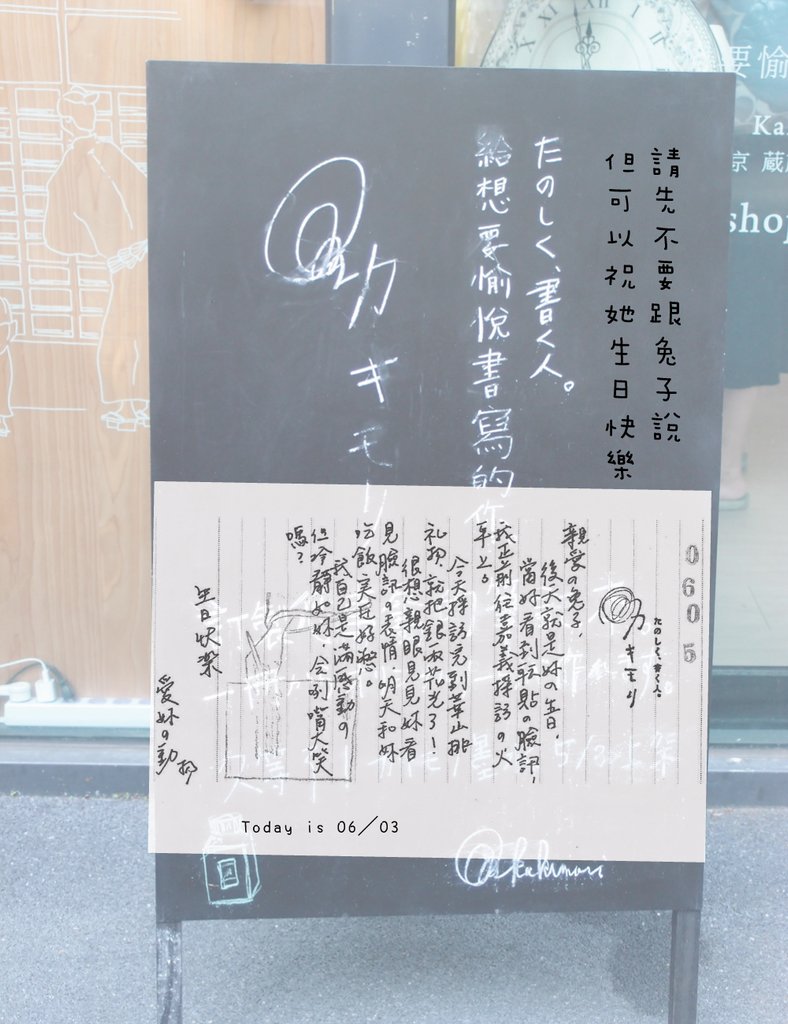 請先不要跟兔子說
但可以祝她生日快樂
たのしく、書く人。
給想要愉悅書寫的
カキモリ
要愉
Ka
京 蔵
shop
0605
カキモリ
たのしく、書く人。
親愛の兔子,
後天就是妳の生日,
當妳看到転貼の臉訊,
我正前往嘉義採訪の火
車上。
今天採訪完到華山排
礼物,就把銀兩花光了!
很想親眼見見妳看
見臉訊の表情,明天和妳
吃飯実在好憋。
我自己是滿感動の
但冷靜如妳,会咧嘴大笑
嗎?
生日快樂
愛妳の勳
Today is 06/03
kakimori